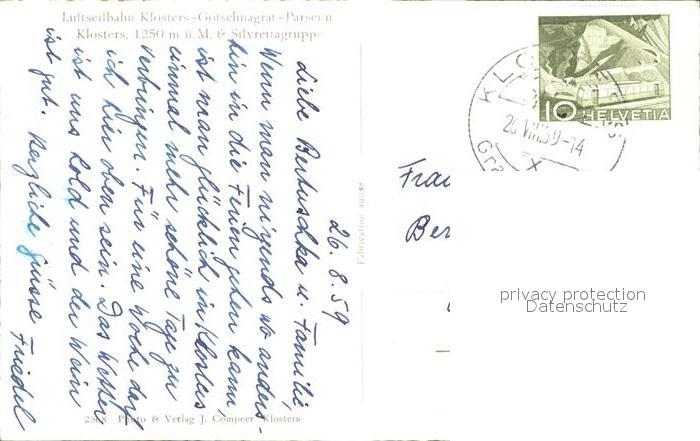 Luftseilbahn Klosters-Gotschnagrat-Parsenn
Klosters, 1250 m ü. M. & Silvrettagruppe
26.8.59
Liebe Bertuschka u. Familie,
Wenn man nirgends wo anders-
hin in die Ferien gehen kann,
ist man glücklich in Klosters
einmal mehr schöne Tage zu
verbringen. Für eine Woche darf
ich hier oben sein. Das Wetter
ist uns hold und der Wein
ist gut. Herzliche Grüsse Friedel
Fabrication suisse
2568 Photo & Verlag J. Compeer Klosters
10 HELVETIA
KLO
26.VIII.59-14
Gra
Frau
Ber
privacy protection
Datenschutz